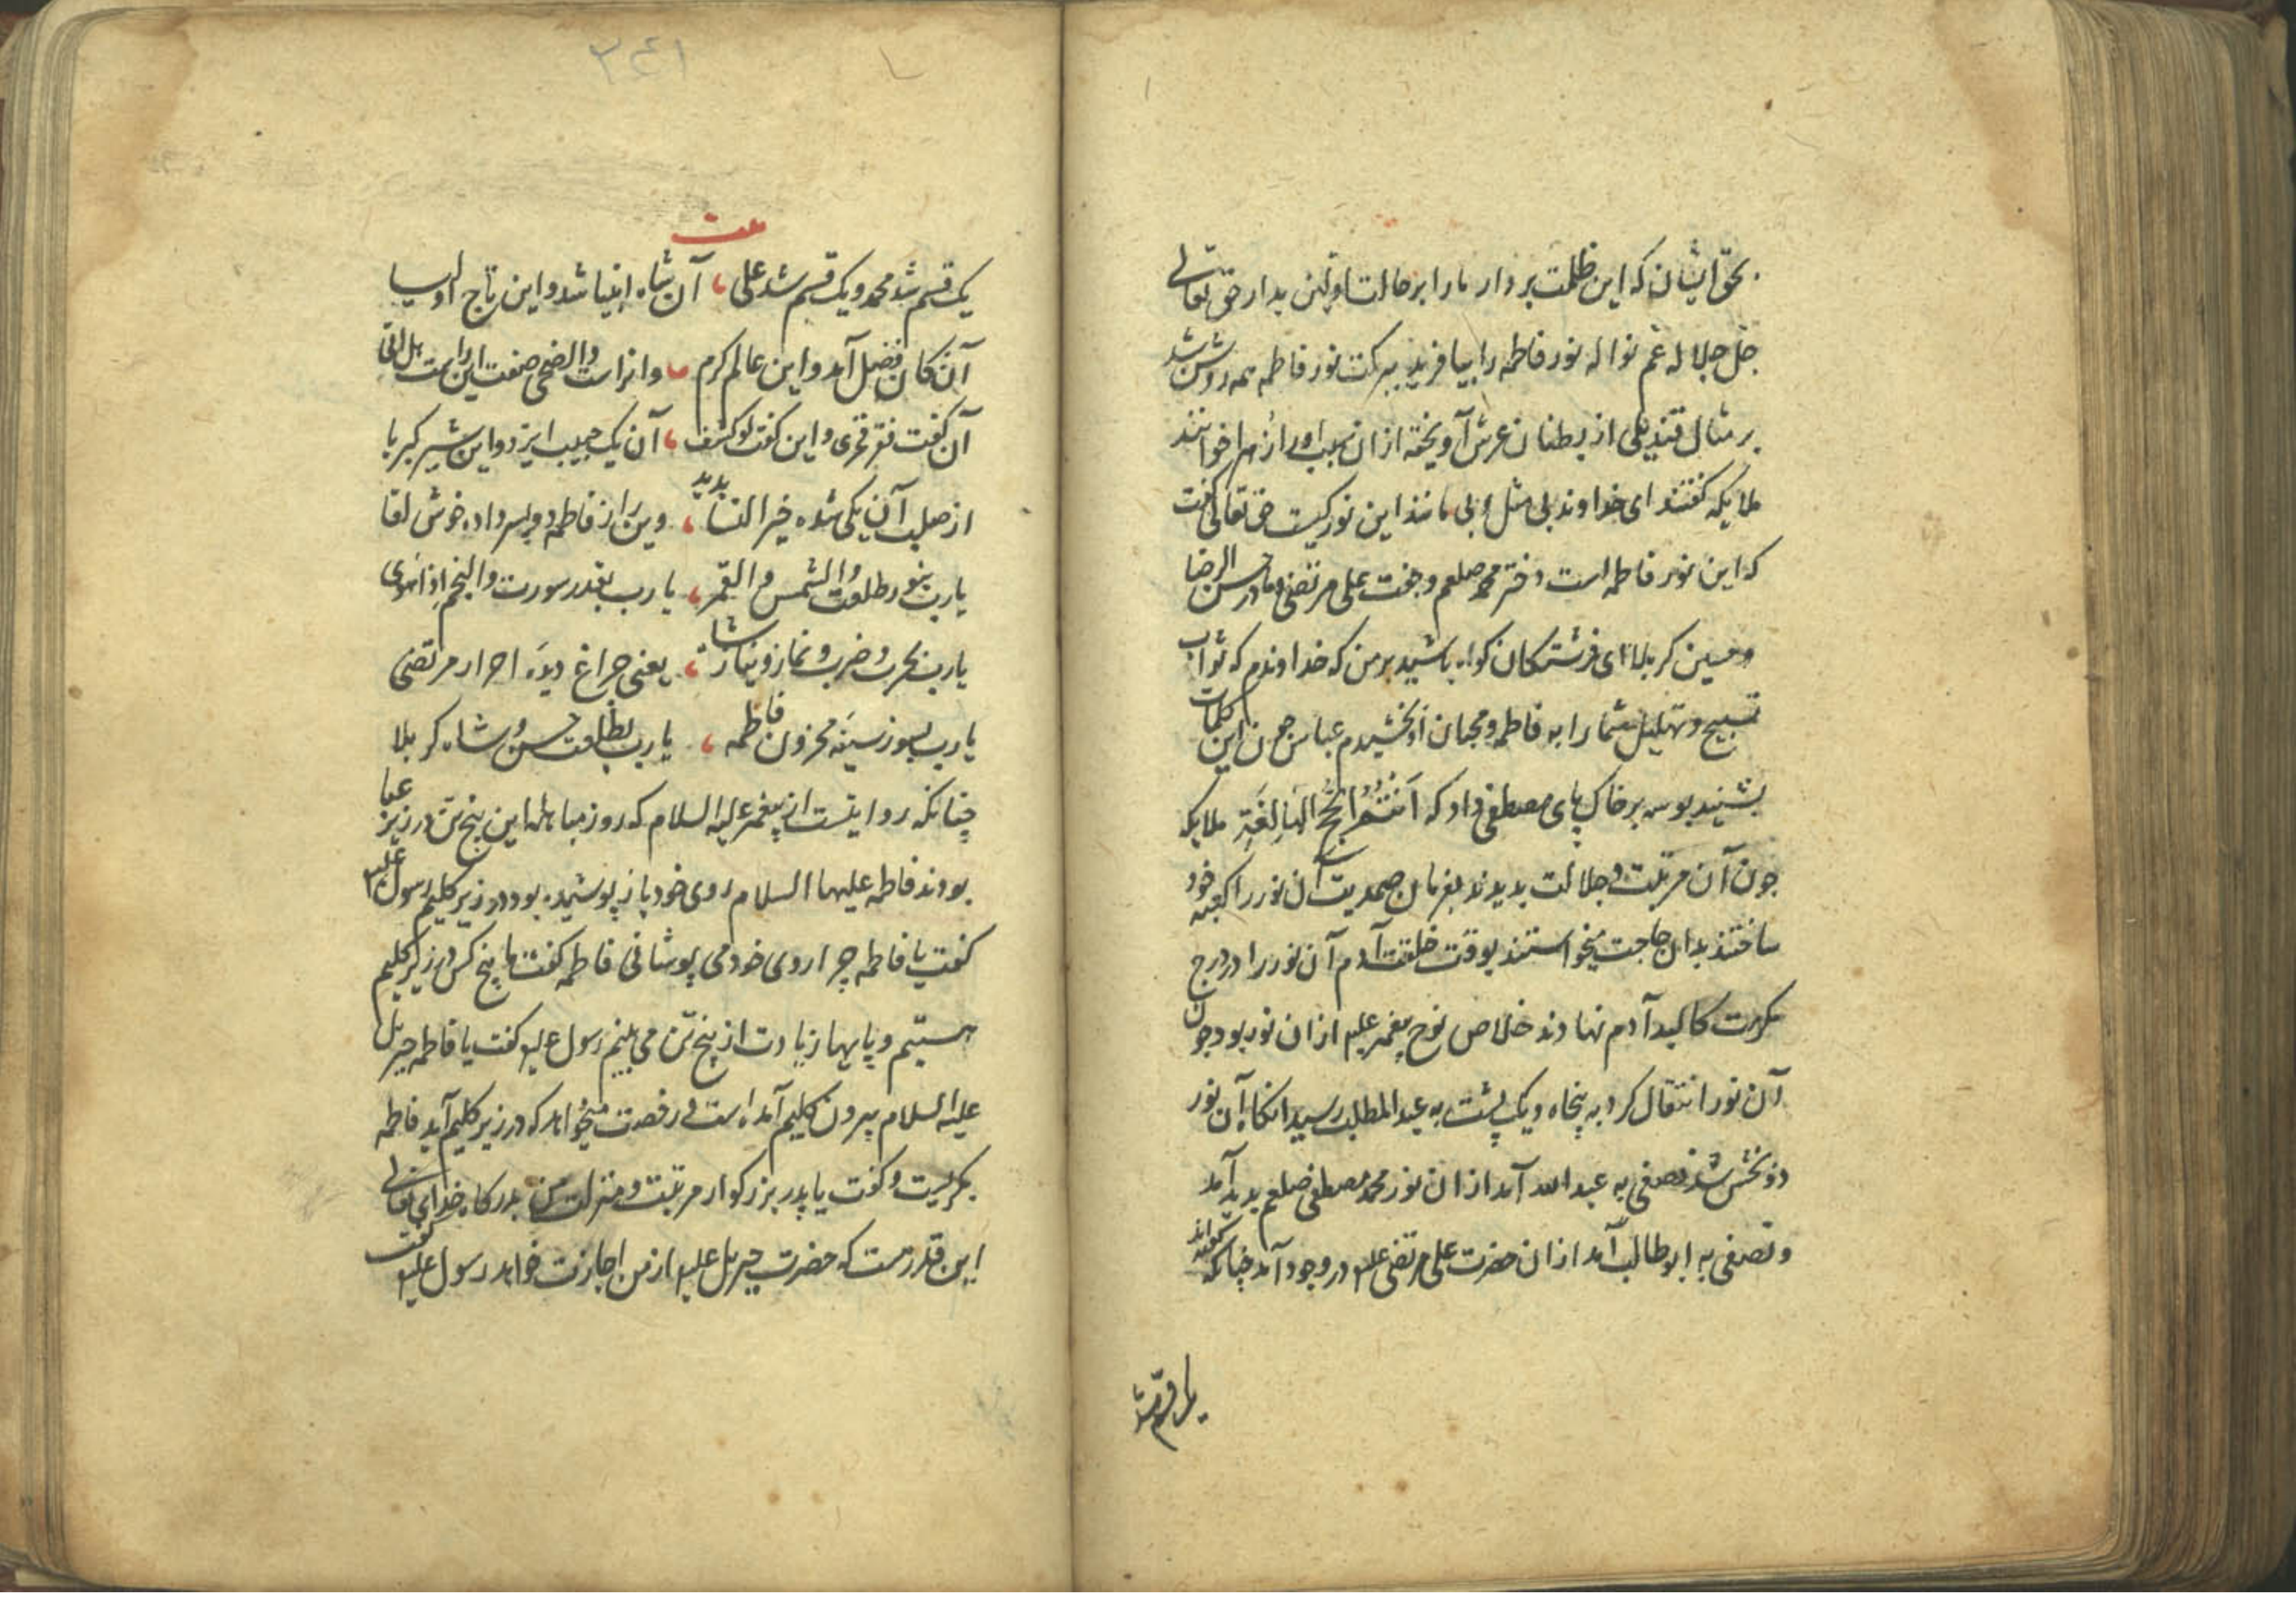 بحق ایشان که این ظلمت بردار ما را بر حالت اولین بدار حق تعالی
جل جلاله عم نواله نور فاطمه را بیافرید ببرکت نور فاطمه همه روشن شد
بر مثال قندیلی از بطنان عرش آویخته از ان سبب او را زهرا خوانند
ملایکه کفتند ای خداوند بی مثل و بی مانند این نور کیست حق تعالی کفت
که این نور فاطمه است دختر محمد صلعم و جفت علی مرتضی و مادر حسن الرضا
و حسین کربلا ای فرشتکان کواه باشید بر من که خداوندم که ثواب
تسبیح و تهلیل شما را به فاطمه و محبان او بخشیدم عباس چون این کلمات
بشنید بوسه بر خاک پای مصطفی داد که انتم الحج البالغة ملایکه
چون آن مرتبت و جلالت بدیدند بفرمان صمدیت آن نور را کعبه خود
ساختند بدان حاجت میخواستند بوقت خلقت آدم آن نور را در درج
مکرمت کالبد آدم نهادند خلاص نوح پیغمبر علیه از ان نور بود چون
آن نور انتقال کرد به پنجاه و یک پشت به عبدالمطلب رسید انکاه آن نور
دو بخش شد نصفی به عبدالله آمد از ان نور محمد مصطفی صلعم پدید آمد
و نصفی به ابوطالب آمد از ان حضرت علی مرتضی علیه در وجود آمد چنانکه گفته‌اند
یک قسم شد
۲۴۱
بیت
یک قسم شد محمد و یک قسم شد علی آن شاه انبیا شد و این تاج اولیا
آن کان فضل آمد و این عالم کرم و انراست والضحی صفت این راست هل اتی
آن کفت فقر فخری و این کفت لو کشف آن یک حبیب ایزد و این شیر کبریا
از صلب آن یکی شده خیر النسا پدید وین را ز فاطمه دو پسر داده خوش لقا
یارب بنور طلعت والشمس والقمر یارب بقدر سورت والنجم اذا هوی
یارب بحرب و ضرب و نماز و نیاز شاه یعنی چراغ دیده احرار مرتضی
یارب بسوز سینه محزون فاطمه یارب بطلعت حسن و شاه کربلا
چنانکه روایتست از پیغمبر علیه السلام که روز مباهله این پنج تن در زیر عبا
بودند فاطمه علیها السلام روی خود باز پوشیده بود در زیر کلیم رسول علیه
کفت یا فاطمه چرا روی خود می پوشانی فاطمه کفت ما پنج کس در زیر کلیم
هستیم و پایها زیادت از پنج تن می بینم رسول علیه کفت یا فاطمه جبریل
علیه السلام بیرون کلیم آمده است و رخصت میخواهد که در زیر کلیم آید فاطمه
بکریست و کفت یا پدر بزرکوار مرتبت و منزلت من بدرکاه خدای تعالی
این قدرست که حضرت جبریل علیه از من اجازت خواهد رسول علیه کفت